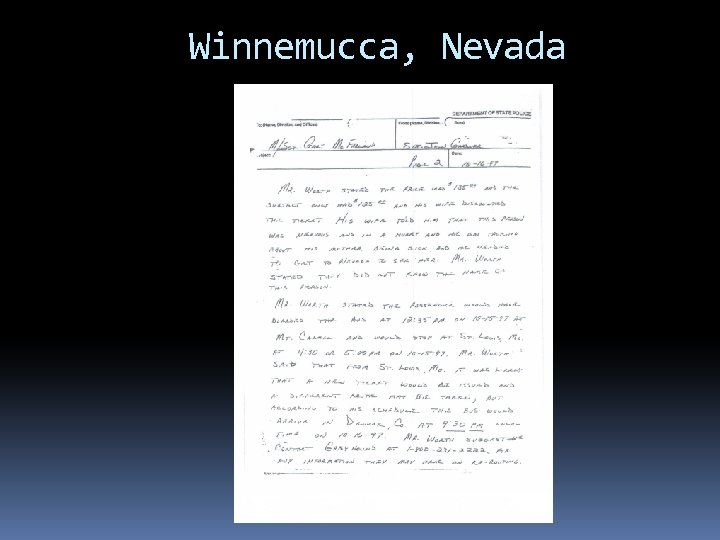 Winnemucca, Nevada
DEPARTMENT OF STATE POLICE
To (Name, Division, and Office) From (Name, Division,
M/Sgt
Page 2 10-16-97
Mr. Worth states the price was $135.00 and the
subject only had $125.00 and his wife discounted
the ticket His wife told him that this person
was nervous and in a hurry and he was talking
about his mother being sick and he needed
to get to Nevada to see her. Mr. Worth
stated they did not know the name of
this person.
Mr Worth stated the passenger would have
boarded the bus at 12:35 PM on 10-15-97 at
Mt. Carmel and would stop at St. Louis, Mo.
at 4:35 or 5:00 PM on 10-15-97. Mr. Worth
said that from St. Louis, Mo. it was likely
that a new ticket would be issued and
a different route may be taken, but
according to his schedule this bus would
arrive in Denver, Co. at 4:30 PM
time on 10-16-97. Mr Worth
contact Greyhound at 1-800-231-2222 for
any information they may have on re-routing.